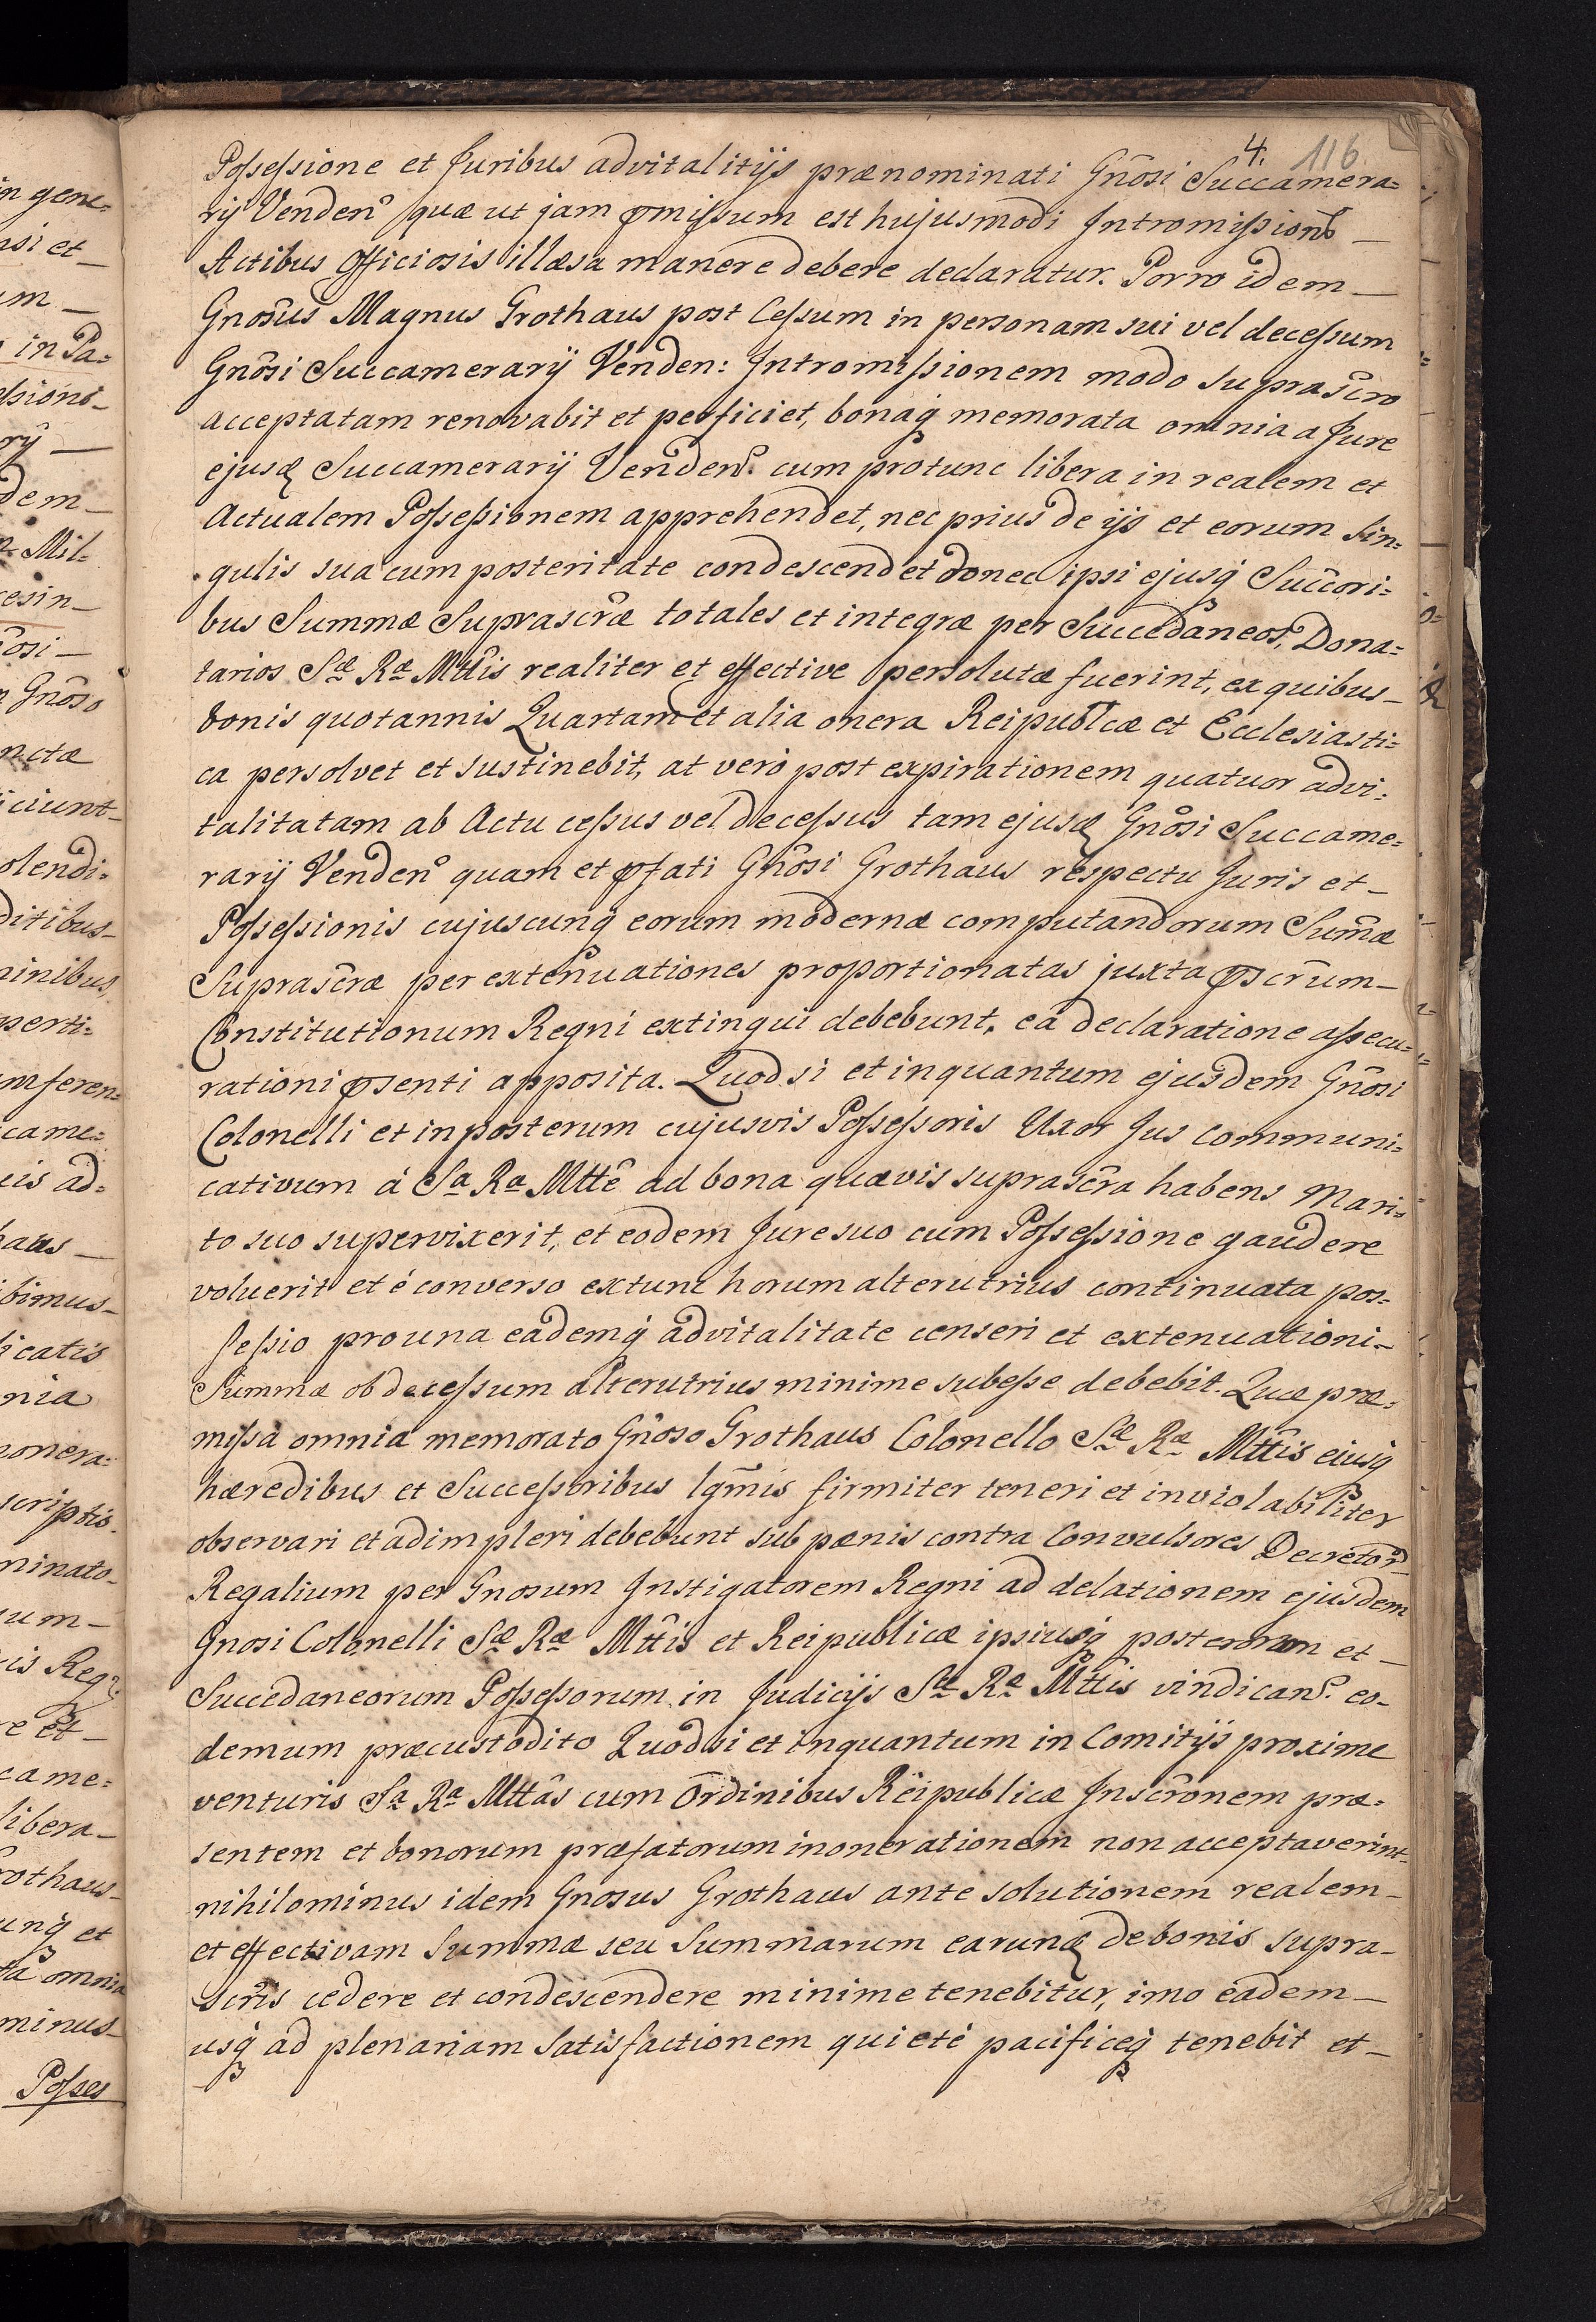 4. 116
Possessione et Juribus advitalitijs prænominati Gnôsi Succamera=
rij Venden° quæ ut jam p̄missum est hujusmodi Intromissionb —
Actibus Officiosis illæsa manere debere declaratur. Porro idem —
Gnosûs Magnus Grothaus post Cessum in personam sui vel decessum
Gnôsi Succamerarij Venden: Intromissionem modo suprascr̂o
acceptatam renovabit et perficiet, bonaq̨ memorata omnia a Jure
ejusd̨ Succamerarij Venden°. cum protunc libera in realem et
Actualem Possessionem apprehendet, nec prius de ijs et eorum sin=
gulis sua cum posteritate condescendet donec ipsi ejusq̨ Succôri=
bus Summæ Suprascr̂æ totales et integræ per Succedaneos, Dona=
tarios Sæ Ræ Mttîs realiter et effective persolutæ fuerint, ex quibus —
bonis quotannis Quartam et alia onera Reipubl̄cæ et Ecclesiasti=
ca persolvet et sustinebit, at verò post expirationem quatuor advi=
talitatam ab Actu cessus vel decessus tam ejusd̨ Gnôsi Succame=
rarij Venden° quam et p̄fati Gnôsi Grothaus respectu Juris et —
Possessionis cujuscunq̨ eorum modernæ computandorum Sum̂æ
Suprascr̂æ per extenuationes proportionatas juxta p̄scr̂um —
Constitutionum Regni extingui debebunt, eâ declaratione assecu=
rationi p̄senti apposita. Quod si et inquantum ejusdem Gnôsi
Colonelli et inposterum cujusvis Possessoris Uxor Jus communi=
cativum á Sa Ra Mttê ad bona quævis suprascr̂a habens Mari=
to suo supervixerit, et eodem Jure suo cum Possessione gaudere
voluerit et é converso extunc horum alterutrius continuata pos=
sessio pro una eademq̨ advitalitate censeri et extenuationi —
Summæ ob decessum alterutrius minime subesse debebit. Quæ præ=
missa omnia memorato Gnôso Grothaus Colonello Sæ Ræ Mttîs ejusq̨
hæredibus et Successoribus lgm̄is firmiter teneri et inviolabiliter
observari et adimpleri debebunt sub pœnis contra Convulsores Decretor̄
Regalium per Gnosum Instigatorem Regni ad delationem ejusdem
Gnosi Colonelli Sæ Ræ Mttîs et Reipublicæ ipsiusq̨ posterorum et —
Succedaneorum Possessorum in Judicijs Sæ Ræ Mttîs vindican°. eo —
demum præcustodito Quod si et inquantum in Comitijs proxime
venturis Sa Ra Mttâs cum Ordinibus Reipublicæ Inscr̂onem præ=
sentem et bonorum præfatorum inonerationem non acceptaverint —
nihilominus idem Gnosus Grothaus ante solutionem realem —
et effectivam Summæ seu Summarum earund̨ de bonis supra —
scr̂is cedere et condescendere minime tenebitur, imo eadem —
usq̨ ad plenariam Satisfactionem quietè pacificeq̨ tenebit et —